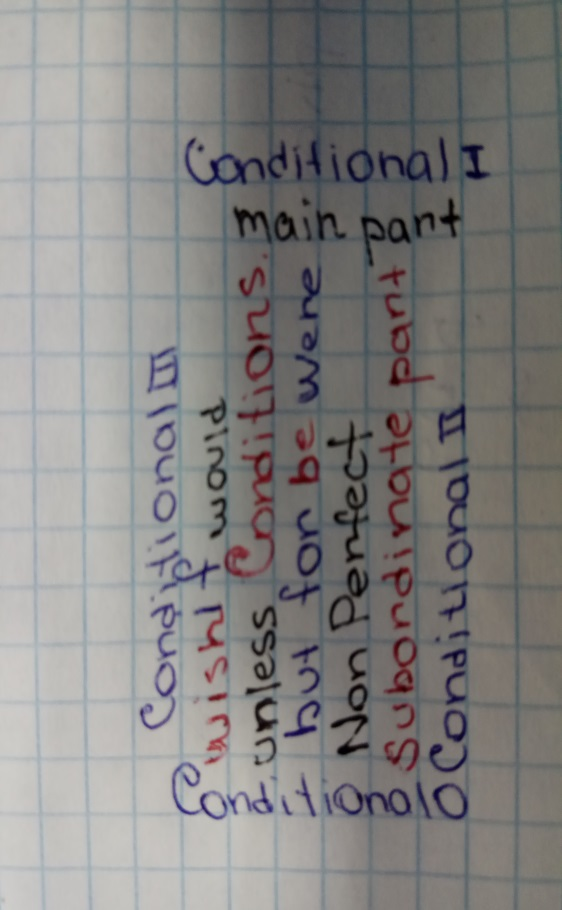 Conditional I
main part
Conditional III
wish If would
unless Conditions.
but for be were
Non Perfect
Subordinate part
Conditional II
Conditional 0